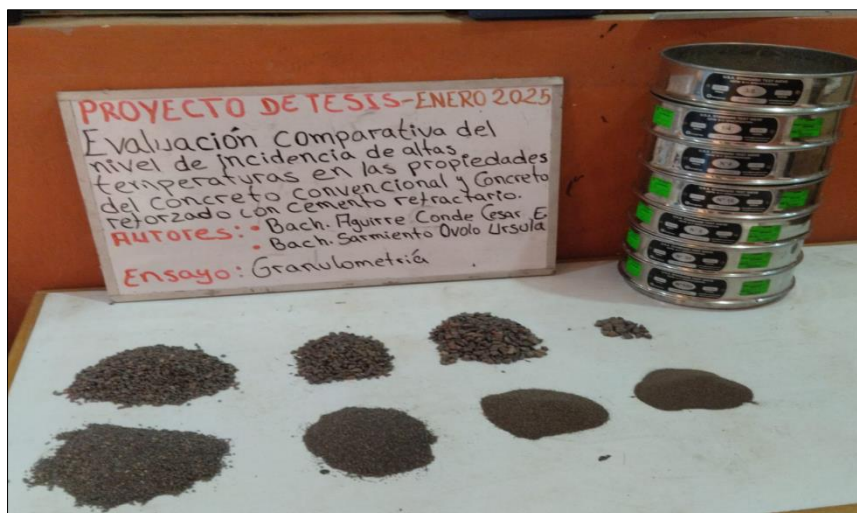 PROYECTO DE TESIS-ENERO 2025
Evaluación comparativa del
nivel de incidencia de altas
temperaturas en las propiedades
del concreto convencional y Concreto
reforzado con cemento refractario.
AUTORES: • Bach. Aguirre Conde Cesar E.
• Bach. Sarmiento Ovalo Ursula
Ensayo: Granulometría